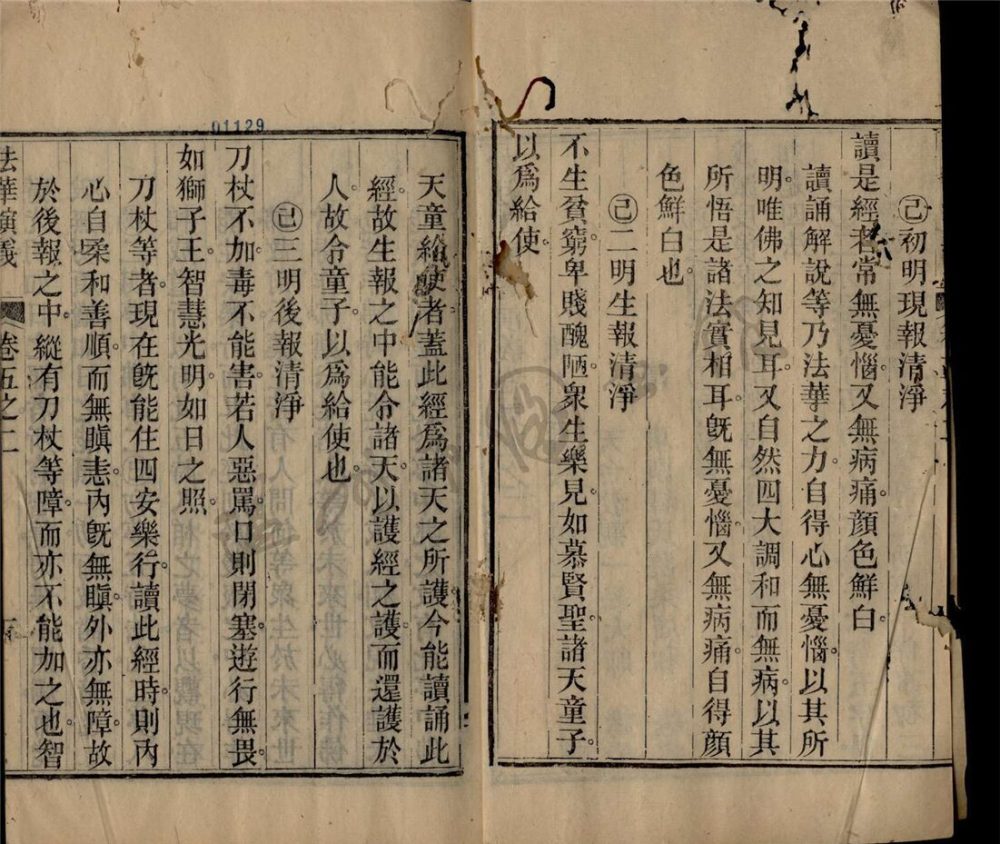 ㊂初明現報清淨
讀是經者常無憂惱。又無病痛。顏色鮮白。
讀誦解說等乃法華之力。自得心無憂惱。以其所
明。唯佛之知見耳。又自然四大調和而無病。以其
所悟是諸法實相耳。旣無憂惱。又無病痛。自得顏
色鮮白也。
㊂二明生報清淨
不生貧窮。卑賤醜陋。衆生樂見。如慕賢聖。諸天童子。
以爲給使。
天童給使者。蓋此經爲諸天之所護。今能讀誦此
經。故生報之中。能令諸天。以護經之護。而還護於
人。故令童子。以爲給使也。
㊂三明後報清淨
刀杖不加。毒不能害。若人惡罵。口則閉塞。遊行無畏。
如獅子王。智慧光明。如日之照。
刀杖等者。現在旣能住四安樂行。讀此經時。則內
心自柔和善順。而無瞋恚。內旣無瞋。外亦無障。故
於後報之中。縱有刀杖等障。而亦不能加之也。智
法華演義
卷五之二
01129